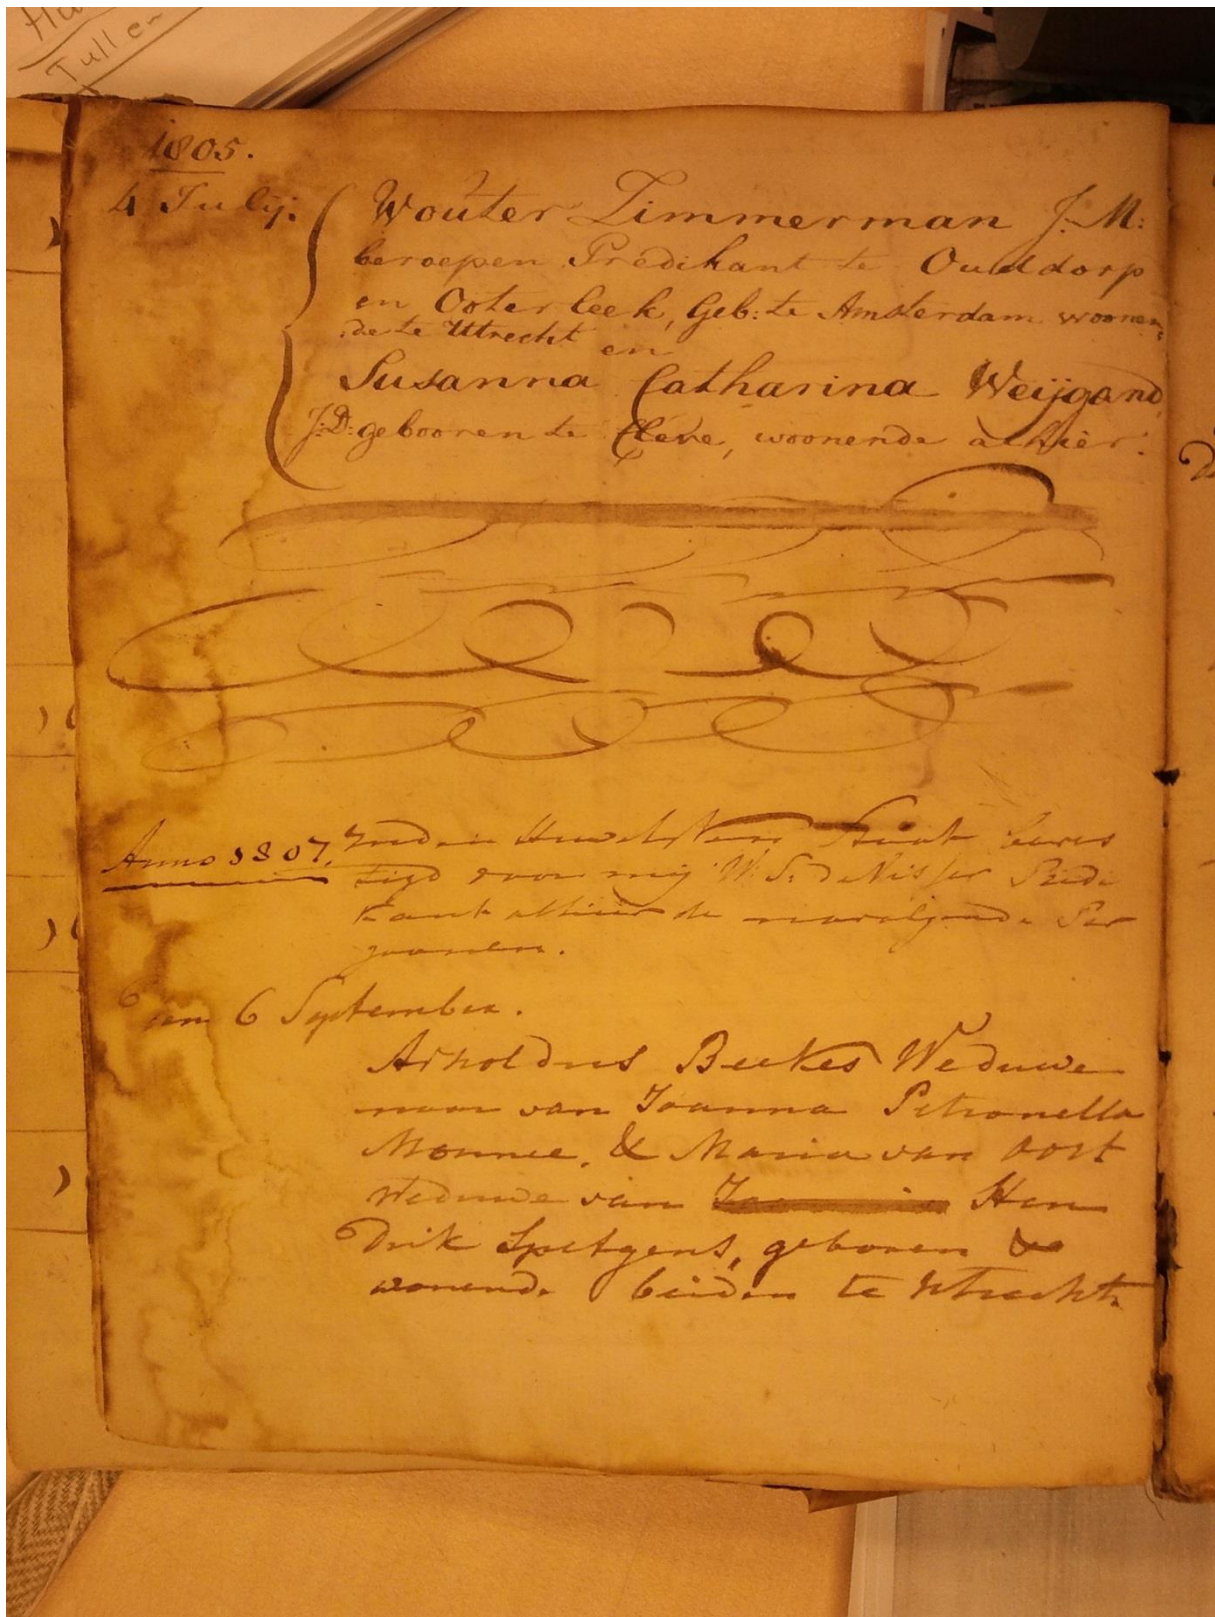 Tull en
1805.
4 July. Wouter Zimmerman J: M:
beroepen Predikant te Oud dorp
en Ooterleek, Geb: te Amsterdam woonen
de te Uttrecht en
Susanna Catharina Weijgand
J: D: gebooren te Cleve, woonende alhier.
Anno 1807. In den Huwelyken Staat beves
tigd door mij W: S: de Predi
kant alhier de navolgende Per
zoonen.
den 6 September.
Arnoldus Beekes Weduwe
naar van Joanna Petronella
Monnee, & Maria van Oost
Weduwe van Hen
drik Spelgens, geboren &
wonende beiden te Utrecht.